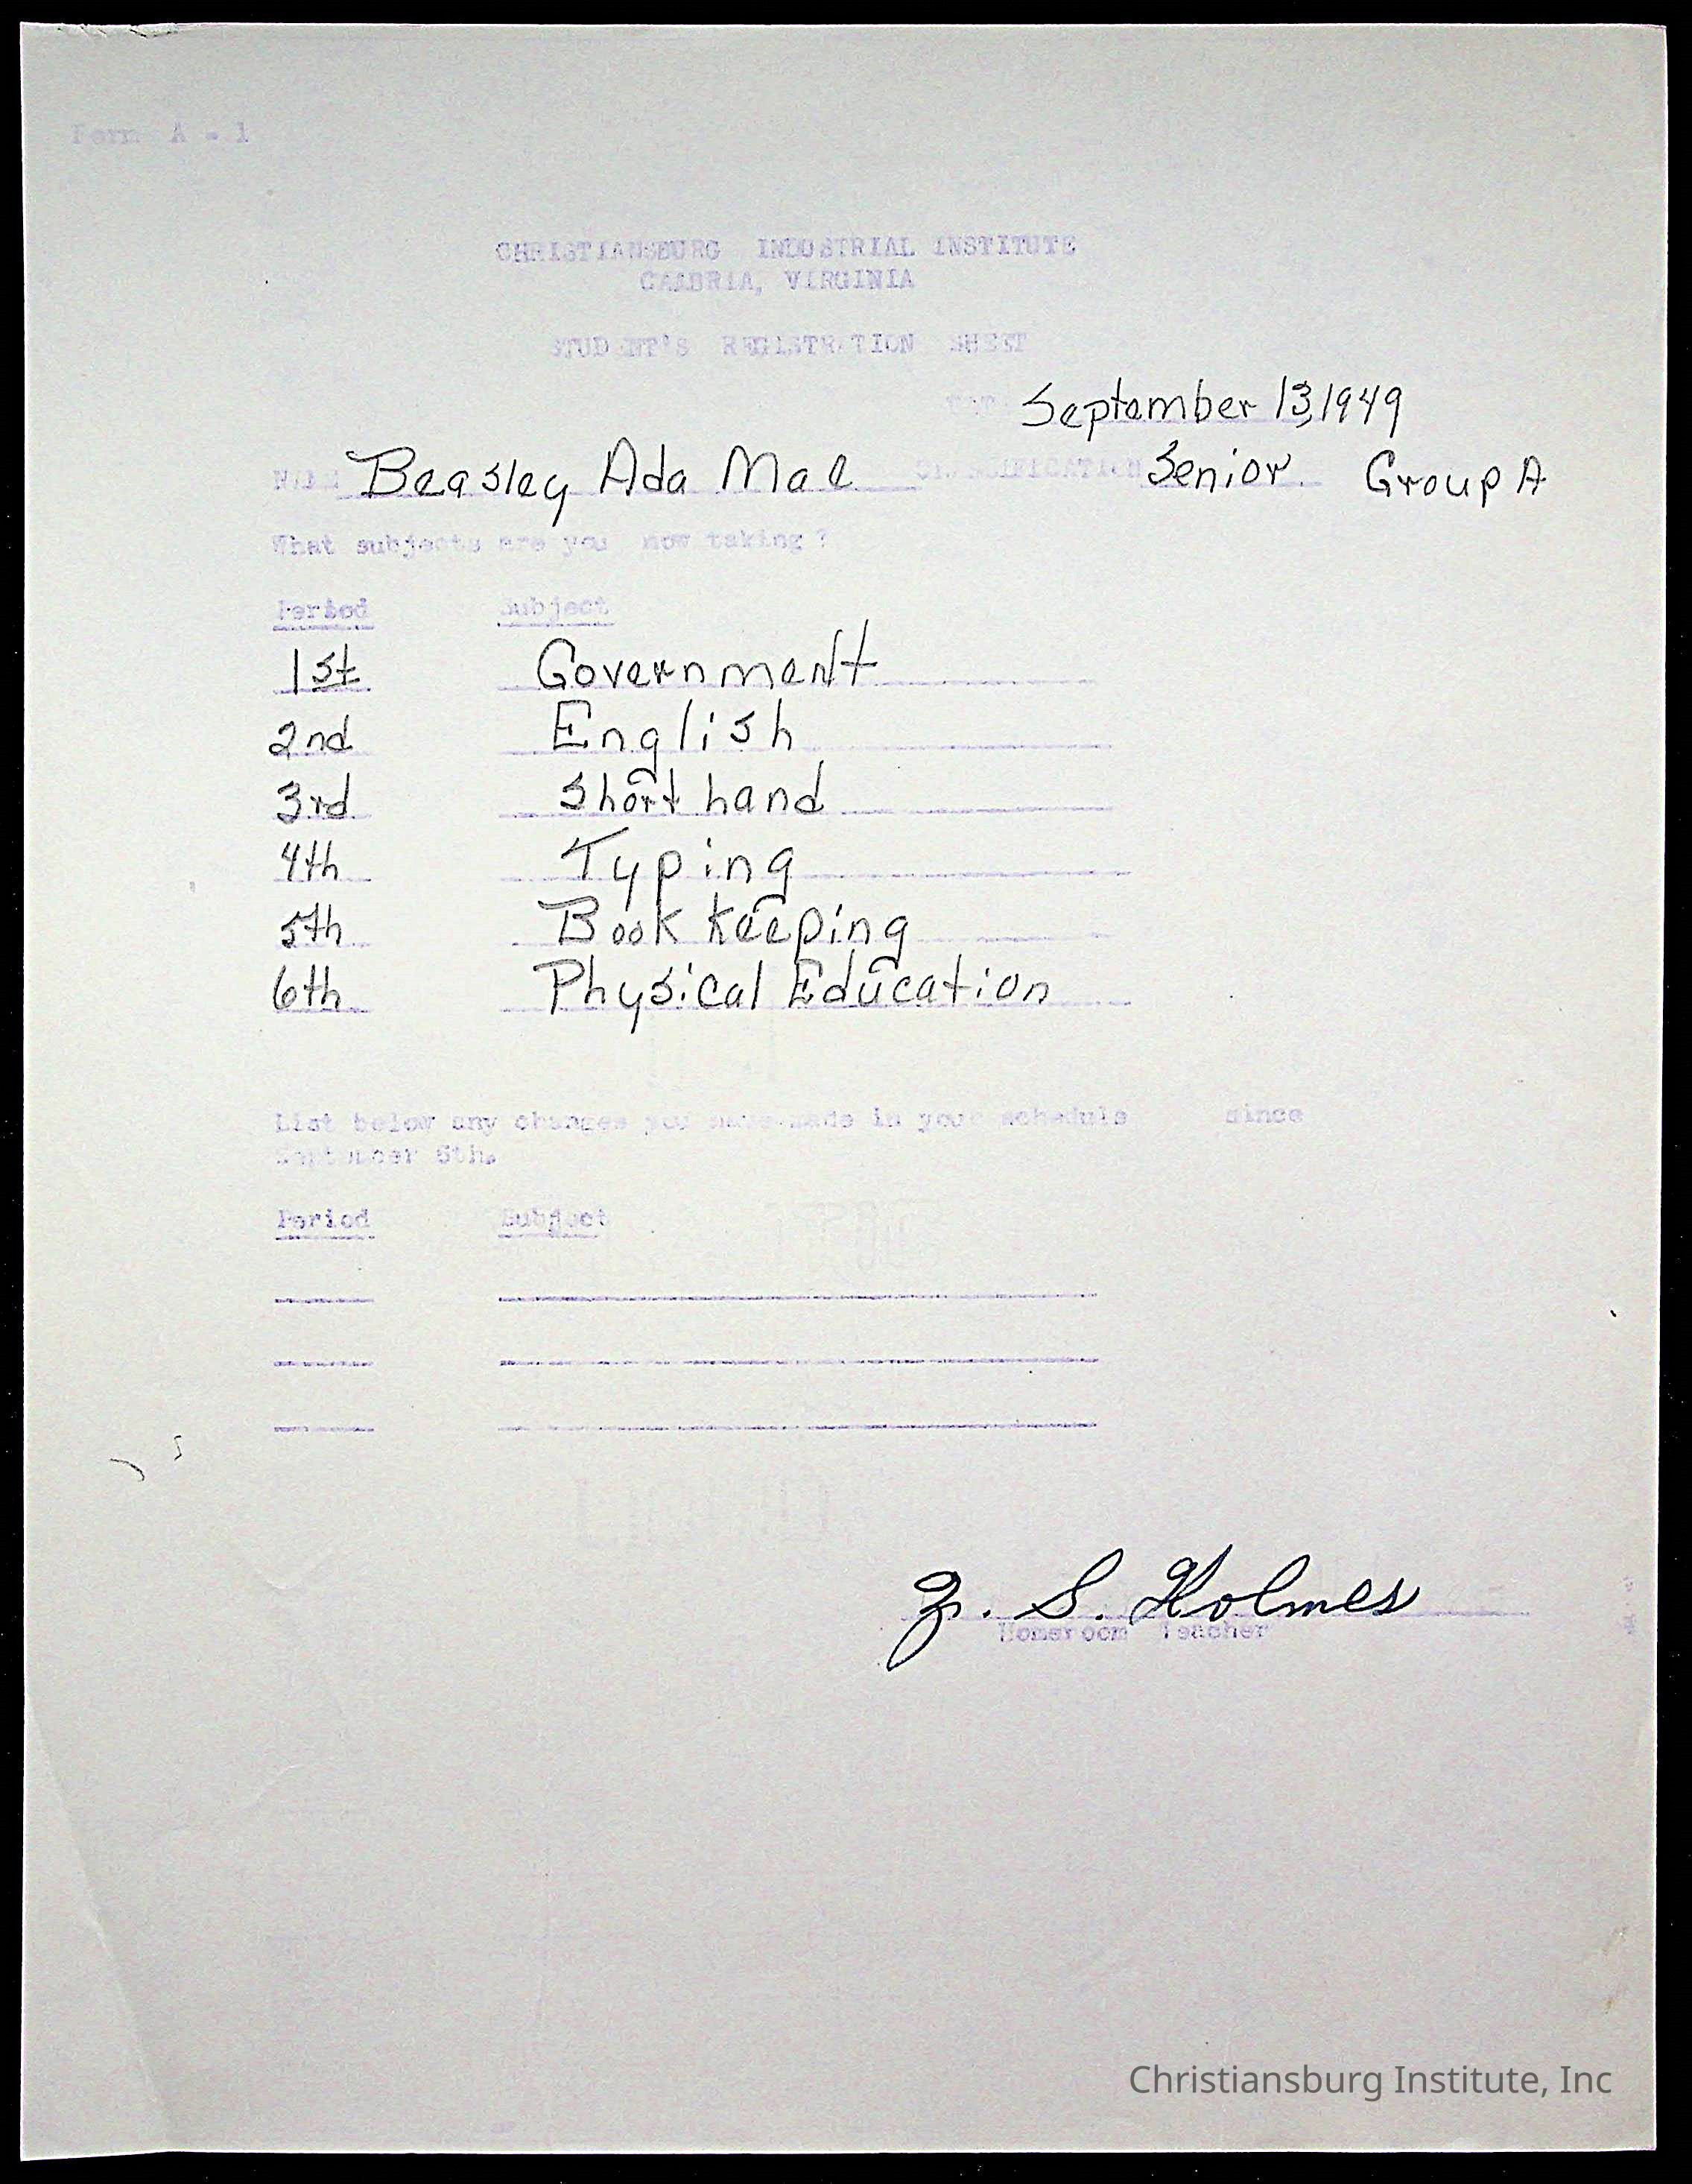 Form A - 1
CHRISTIANSBURG INDUSTRIAL INSTITUTE
CAMBRIA, VIRGINIA
STUDENT'S REGISTRATION SHEET
September 13, 1949
NAME Beasley Ada Mae CLASSIFICATION Senior Group A
What subjects are you now taking?
Period Subject
1st Government
2nd English
3rd Short hand
4th Typing
5th Book keeping
6th Physical Education
List below any changes you have made in your schedule since
September 6th.
Period Subject
Z. S. Holmes
Homeroom Teacher
Christiansburg Institute, Inc